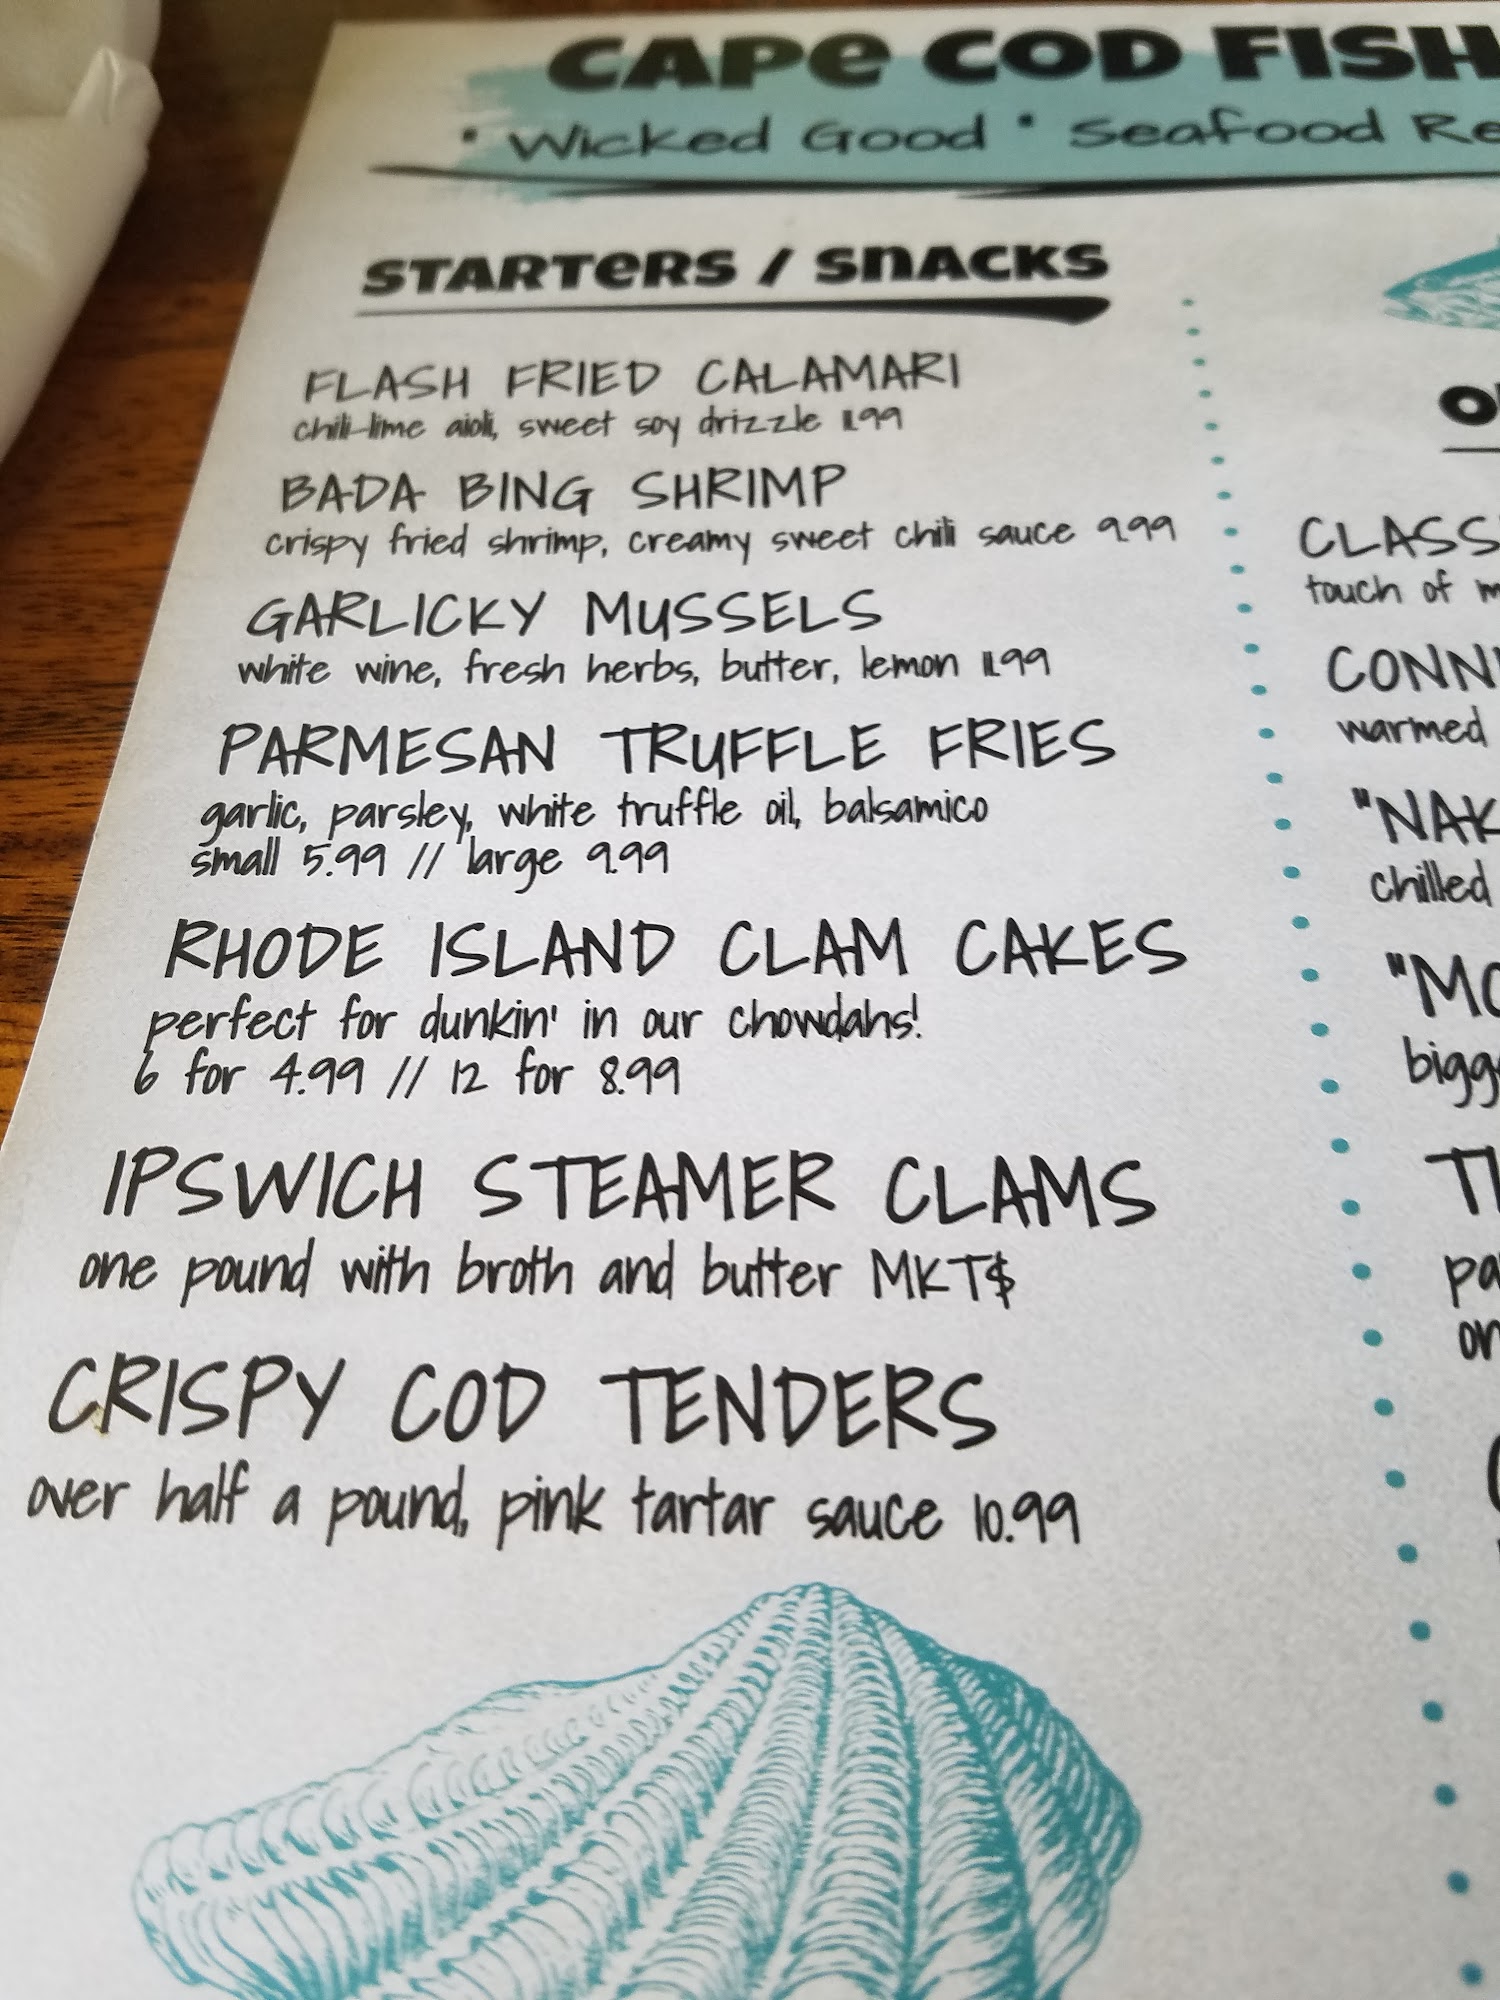 CAPE COD FISH
• Wicked Good • Seafood
STARTERS / SNACKS
FLASH FRIED CALAMARI
chili-lime aioli, sweet soy drizzle 11.99
BADA BING SHRIMP
crispy fried shrimp, creamy sweet chili sauce 9.99
GARLICKY MUSSELS
white wine, fresh herbs, butter, lemon 11.99
PARMESAN TRUFFLE FRIES
garlic, parsley, white truffle oil, balsamico
small 5.99 // large 9.99
RHODE ISLAND CLAM CAKES
perfect for dunkin' in our chowdahs!
6 for 4.99 // 12 for 8.99
IPSWICH STEAMER CLAMS
one pound with broth and butter MKT$
CRISPY COD TENDERS
over half a pound, pink tartar sauce 10.99
touch of
warmed
chilled